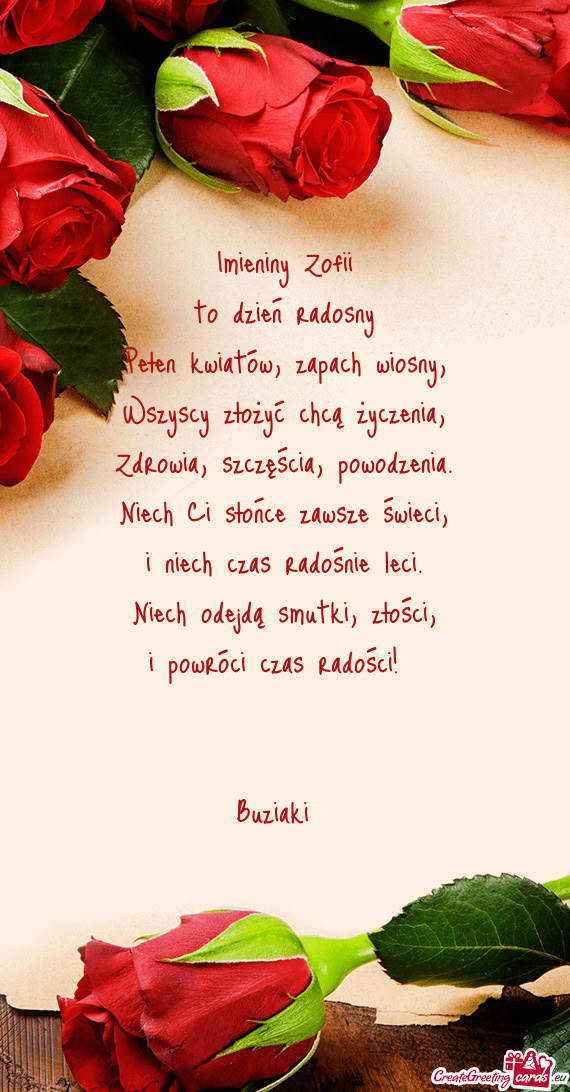 Imieniny Zofii
to dzień radosny
Pełen kwiatów, zapach wiosny,
Wszyscy złożyć chcą życzenia,
Zdrowia, szczęścia, powodzenia.
Niech Ci słońce zawsze świeci,
i niech czas radośnie leci.
Niech odejdą smutki, złości,
i powróci czas radości!
Buziaki
CreateGreetingcards.eu